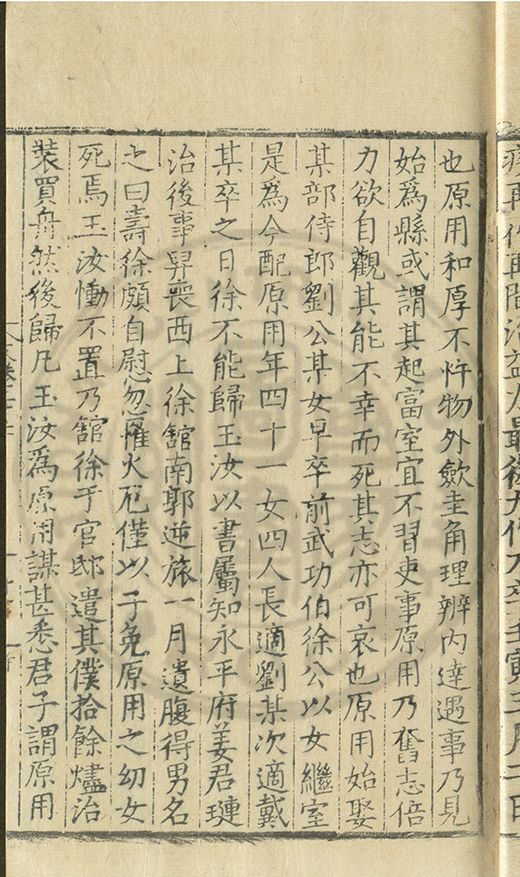 再作再閒治益
最後
寅三月二日
也原用和厚不忤物外歛圭角理辨內達遇事乃見
始爲縣或謂其起富室宜不習吏事原用乃奮志倍
力欲自觀其能不幸而死其志亦可哀也原用始娶
某部侍郎劉公某女早卒前武功伯徐公以女繼室
是爲今配原用年四十一女四人長適劉某次適戴
某卒之日徐不能歸玉汝以書屬知永平府姜君璉
治後事舁喪西上徐舘南郭逆旅一月遺腹得男名
之曰壽徐頗自慰忽罹火厄僅以子免原用之幼女
死焉玉汝慟不置乃舘徐于官邸遣其僕拾餘燼治
裝買舟然後歸凡玉汝爲原用謀甚悉君子謂原用